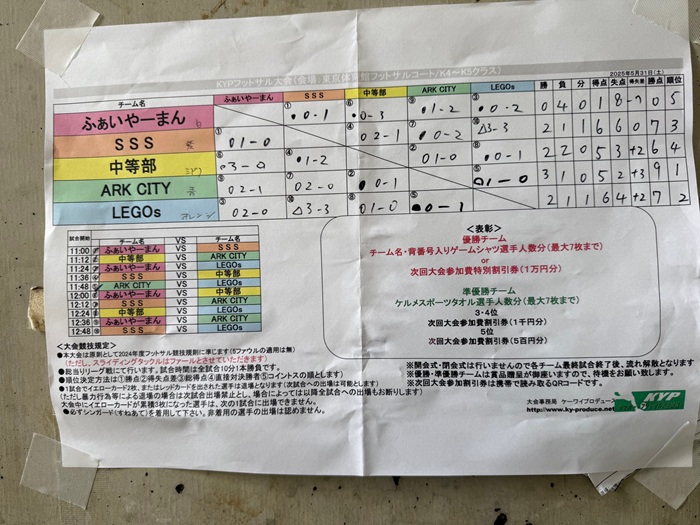 KYPフットサル大会《会場:東京体育館フットサルコート/K4～K5クラス》
2025年5月31日(土)
チーム名 ふぁいやーまん SSS 中等部 ARK CITY LEGOs 勝 負 分 得点 失点 得失差 勝点 順位
ふぁいやーまん 白 ① ●0-1 ⑥ ●0-3 ⑨ ●1-2 ③ ●0-2 0 4 0 1 8 -7 0 5
SSS ① ○1-0 ④ ○2-1 ⑦ ●0-2 ⑩ △3-3 2 1 1 6 6 0 7 3
中等部 ⑥ ○3-0 ④ ●1-2 ② ○1-0 ⑧ ●0-1 2 2 0 5 3 +2 6 4
ARK CITY ⑨ ○2-1 ⑦ ○2-0 ② ●0-1 ⑤ 1-0 3 1 0 5 2 +3 9 1
LEGOs オレンジ ③ ○2-0 ⑩ △3-3 ⑧ ○1-0 ⑤ ●0-1 2 1 1 6 4 +2 7 2
試合開始 チーム名 VS チーム名
11:00 ① ふぁいやーまん VS SSS
11:12 ② 中等部 VS ARK CITY
11:24 ③ ふぁいやーまん VS LEGOs
11:36 ④ SSS VS 中等部
11:48 ARK CITY VS LEGOs
12:00 ⑥ ふぁいやーまん VS 中等部
12:12 ⑦ SSS VS ARK CITY
12:24 ⑧ 中等部 VS LEGOs
12:36 ⑨ ふぁいやーまん VS ARK CITY
12:48 ⑩ SSS VS LEGOs
<表彰>
優勝チーム
チーム名・背番号入りゲームシャツ選手人数分(最大7枚まで)
or
次回大会参加費特別割引券(1万円分)
準優勝チーム
ケルメスポーツタオル選手人数分(最大7枚まで)
3・4位
次回大会参加費割引券(1千円分)
5位
次回大会参加費割引券(5百円分)
<大会競技規定>
●本大会は原則として2024年度フットサル競技規則に準じます(5ファウルの適用は無)
(ただし、スライディングタックルはファールとさせていただきます)
●総当りリーグ戦にて行います。試合時間は全試合10分1本勝負です。
●順位決定方法は①勝点②得失点差③総得点④直接対決勝者⑤コイントスの順とします
●1試合でイエローカード2枚、またはレッドカードを出された選手は退場となります(次試合への出場は可能とします)
(ただし暴力行為等による退場の場合は次試合出場禁止とし、場合によっては以降全試合への出場もお断りします)
大会中にイエローカードが累積3枚になった選手は、次の1試合に出場できません。
●必ずシンガード(すねあて)を着用して下さい。非着用の選手の出場は認めません。
※開会式・閉会式は行いませんので各チーム最終試合終了後、流れ解散となります
※優勝・準優勝チームは賞品贈呈が御座いますので、待機をお願い致します。
※次回大会参加費割引券は携帯で読み取るQRコードです。
大会事務局 ケーワイプロデュース
http://www.ky-produce.net
KYP